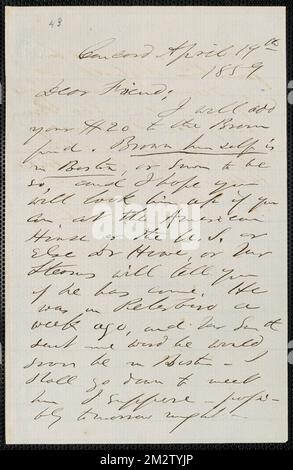 43
Concord April 19th
1859
Dear Friend;
I will add
your $20 to the Brown
fund. Brown himself is
in Boston, or soon to be
so, and I hope you
will look him up if you
can at the American
House or the U.S. or
Else Dr Howe, or Mr
Stearns will tell you
if he has come. He
was in Peterboro a
week ago, and Mr Smith
sent me word he would
soon be in Boston - I
shall go down to meet
him I suppose - possi-
bly tomorrow night -
alamy
Image ID: 2M2TYJP
www.alamy.com